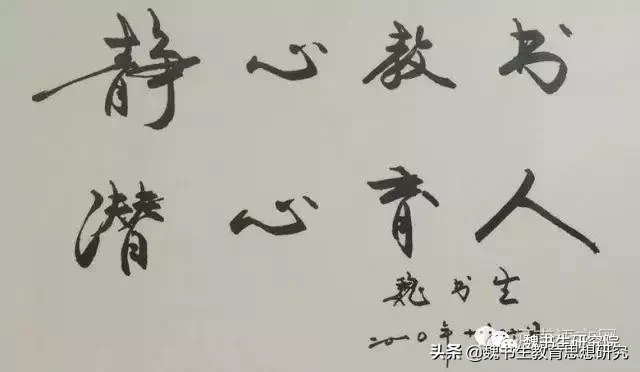 静心教书
潜心育人
魏书生
二〇一〇年十
魏书生研究院
头条 @魏书生教育思想研究